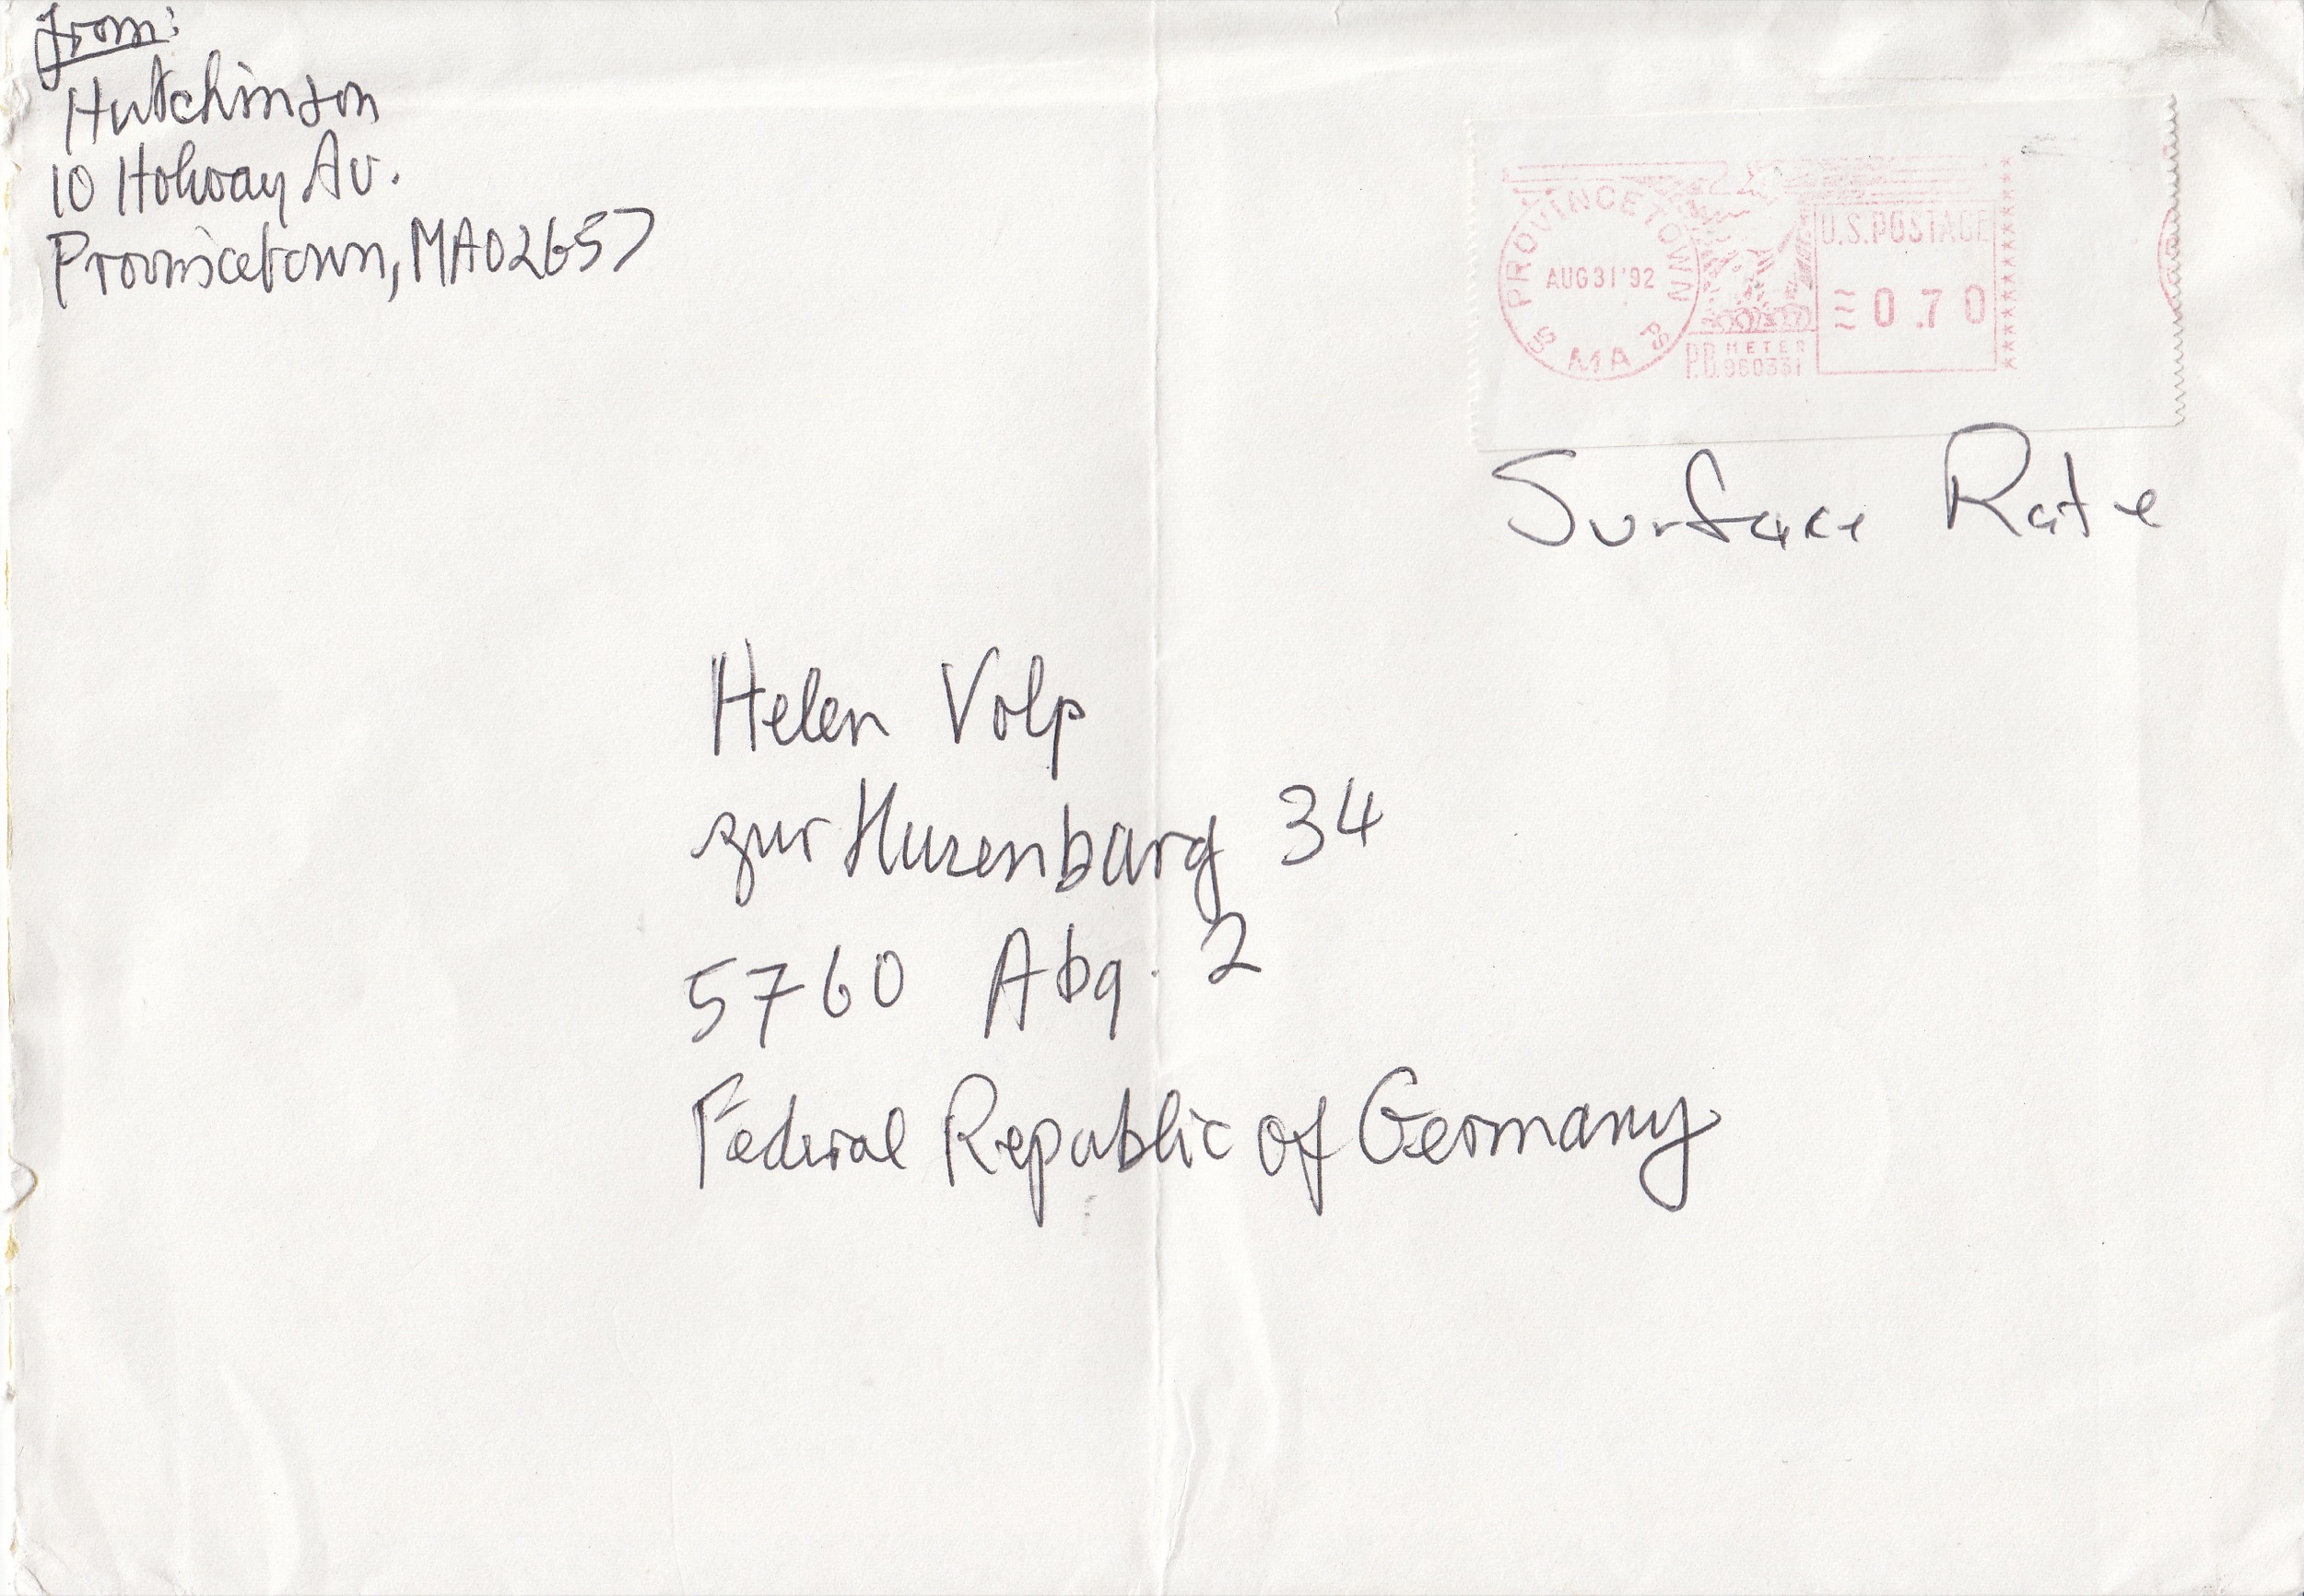 From:
Hutchinson
10 Holway Av.
Provincetown, MA 02657
PROVINCETOWN
AUG 31 '92
MA
U.S. POSTAGE
0.70
P.B. METER
960331
Surface Rate
Helen Volp
zur Husenburg 34
5760 Abg. 2
Federal Republic of Germany